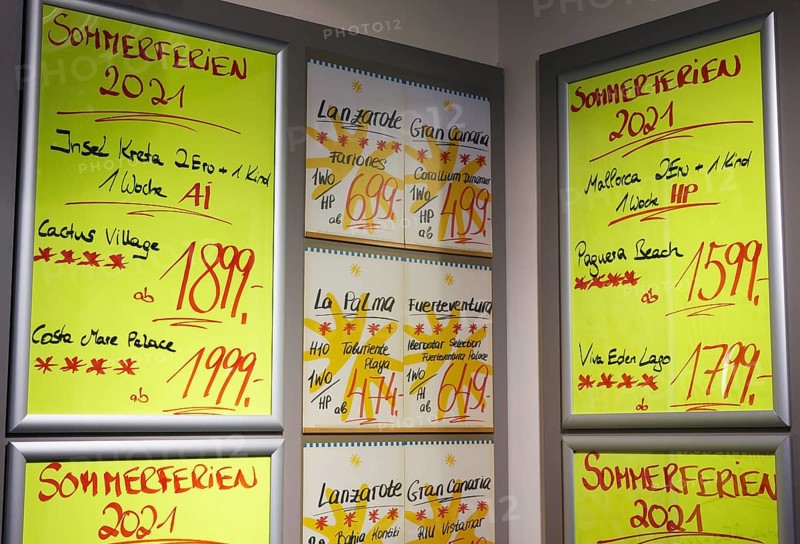 SOMMERFERIEN
2021
Insel Kreta 2Erw + 1 Kind
1 Woche AI
Cactus Village
****
ab 1899,-
Costa Mare Palace
****
ab 1999,-
SOMMERFERIEN
2021
Lanzarote
****
Fariones
1WO
HP
ab 699,-
Gran Canaria
****
Corallium Dunamar
1WO
HP
ab 499,-
La Palma
***+
H10 Taburiente
Playa
1WO
HP ab 474,-
Fuerteventura
****+
Iberostar Selection
Fuerteventura Palace
1WO
AI
ab 649,-
Lanzarote
****
Bahia Kontiki
Gran Canaria
****
RIU Vistamar
SOMMERFERIEN
2021
Mallorca 2Erw + 1 Kind
1 Woche HP
Paguera Beach
****
ab 1599,-
Viva Eden Lago
****
ab 1799,-
SOMMERFERIEN
2021
PHOTO12